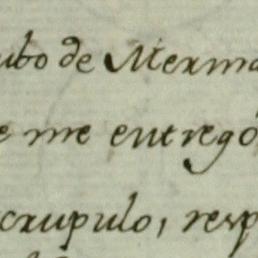 ubo de Merma
e me entregó
crupulo, resp